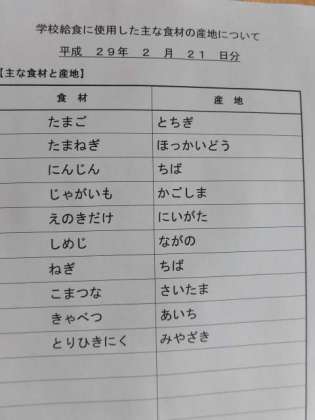 学校給食に使用した主な食材の産地について
平成　２９年　２　月　２１　日分
【主な食材と産地】
食　材　産　地
たまご　とちぎ
たまねぎ　ほっかいどう
にんじん　ちば
じゃがいも　かごしま
えのきだけ　にいがた
しめじ　ながの
ねぎ　ちば
こまつな　さいたま
きゃべつ　あいち
とりひきにく　みやざき